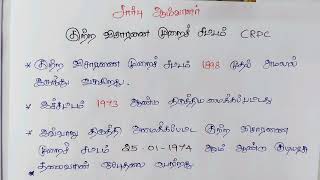 சார்பு ஆய்வாளர்
குற்ற விசாரணை முறைச் சட்டம் CRPC
* குற்ற விசாரணை முறைச் சட்டம் 1898 முதல் அமலில்
இருந்து வருகிறது.
* இச்சட்டம் 1973 ஆண்டு திருத்தியமைக்கப்பட்டது
* இவ்வாறு திருத்தி அமைக்கப்பட்ட குற்ற விசாரணை
முறைச் சட்டம் 25-01-1974 ஆம் ஆண்டு குடியரசு
தலைவரின் ஒப்புதலை பெற்றது.